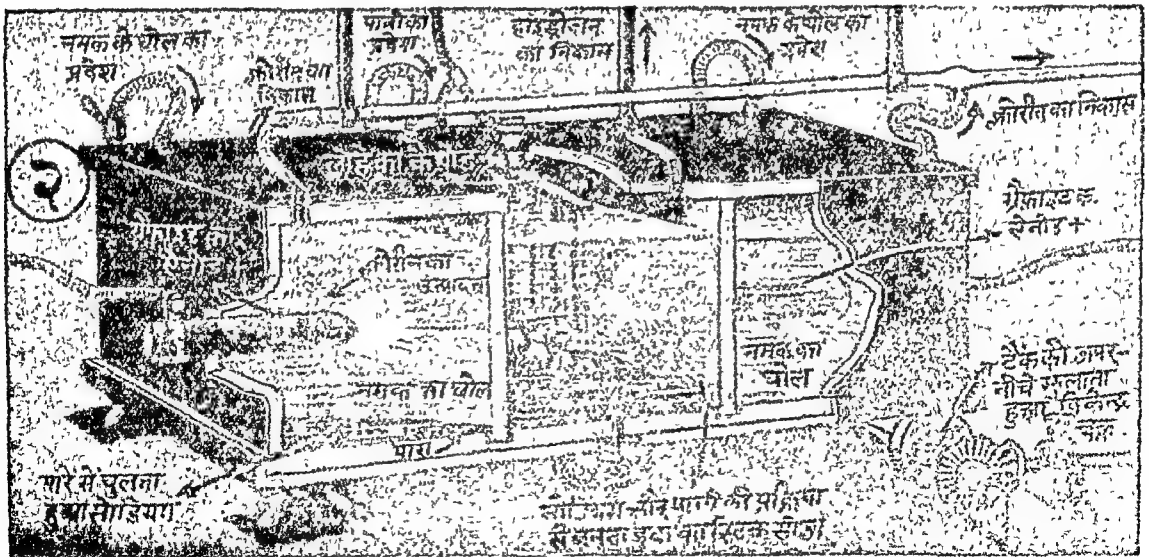 नमक के घोल का
प्रवेश
क्लोरीन का
निकास
पानी का
प्रवेश
हाइड्रोजन
का निकास
नमक के घोल का
प्रवेश
क्लोरीन का निकास
२
लोहे का कैथोड
ग्रेफाइट क
ऐनोड +
ग्रेफाइट का
क्लोरीन का
उत्पादन
नमक का घोल
नमक का
घोल
टैंक को ऊपर-
नीचे
हुआ
पारा
पारे से घुलता
हुआ सोडियम
सोडियम और पानी की
से बनता हुआ कास्टिक सोडा